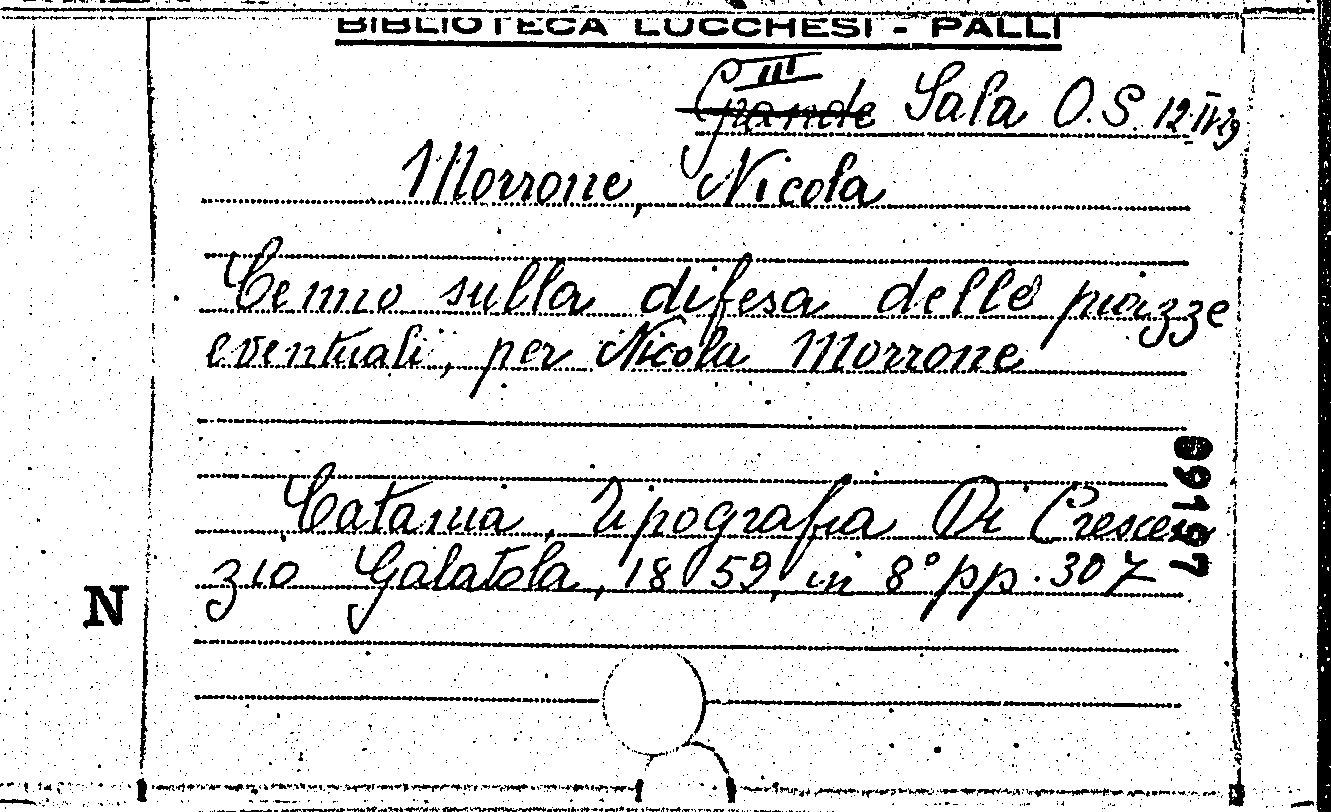 BIBLIOTECA LUCCHESI - PALLI
III
Grande Sala O.S. 12.IV.29
Morrone, Nicola
Cenno sulla difesa delle piazze
eventuali, per Nicola Morrone
Catania, Tipografia Di Crescen
zio Galatola, 1859, in 8° pp. 307
09167
N